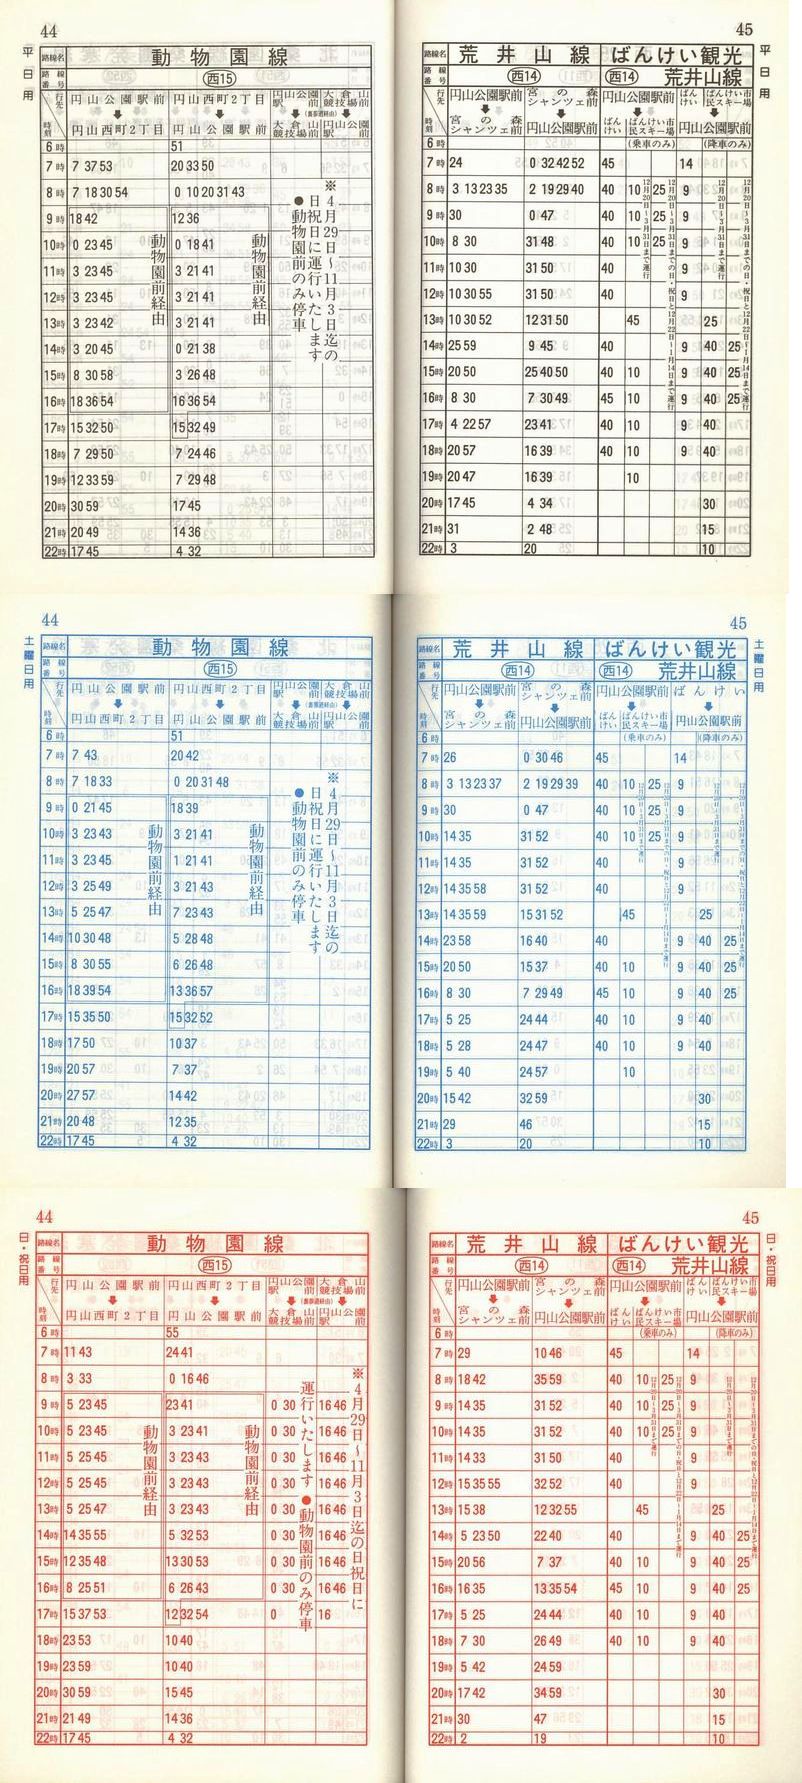 44
平日用
路線名 動物園線
路線番号 西15
行先 時刻
円山公園駅前 円山西町2丁目
円山西町2丁目 円山公園駅前
円山公園駅前 大倉山競技場前
大倉山競技場前 円山公園駅前
※4月29日～11月3日迄の
日祝日に運行いたします
●動物園前のみ停車
動物園前経由 動物園前経由
6時 51
7時 7 37 53 20 33 50
8時 7 18 30 54 0 10 20 31 43
9時 18 42 12 36
10時 0 23 45 0 18 41
11時 3 23 45 3 21 41
12時 3 23 45 3 21 41
13時 3 23 42 3 21 41
14時 3 20 45 0 21 38
15時 8 30 58 3 26 48
16時 18 36 54 16 36 54
17時 15 32 50 15 32 49
18時 7 29 50 7 24 46
19時 12 33 59 7 29 48
20時 30 59 17 45
21時 20 49 14 36
22時 17 45 4 32
45
平日用
路線名 荒井山線 ばんけい観光
路線番号 西14 西14 荒井山線
行先 時刻
円山公園駅前 宮の森シャンツェ前
宮の森シャンツェ前 円山公園駅前
円山公園駅前 ばんけい ばんけい市民スキー場
ばんけい ばんけい市民スキー場 円山公園駅前
(乗車のみ) (降車のみ)
12月20日～3月31日まで運行
6時
7時 24 0 32 42 52 45 14
8時 3 13 23 35 2 19 29 40 40 10 25 9
9時 30 0 47 40 10 25 9
10時 8 30 31 48 40 10 25 9
11時 10 30 31 50 40 9
12時 10 30 55 31 50 40 9
13時 10 30 52 12 31 50 45 25
14時 25 59 9 45 40 9 40 25
15時 20 50 25 40 50 40 10 9 40 25
16時 8 30 7 30 49 45 10 9 40 25
17時 4 22 57 23 41 40 10 9 40
18時 20 57 16 39 40 10 9 40
19時 20 47 16 39 10
20時 17 45 4 34 30
21時 31 2 48 15
22時 3 20 10
44
土曜日用
路線名 動物園線
路線番号 西15
行先 時刻
円山公園駅前 円山西町2丁目
円山西町2丁目 円山公園駅前
円山公園駅前 大倉山競技場前
大倉山競技場前 円山公園駅前
※4月29日～11月3日迄の
日祝日に運行いたします
●動物園前のみ停車
動物園前経由 動物園前経由
6時 51
7時 7 43 20 42
8時 7 18 33 0 20 31 48
9時 0 21 45 18 39
10時 3 23 43 3 21 41
11時 3 23 45 1 21 41
12時 3 25 49 3 21 43
13時 5 25 47 7 23 43
14時 10 30 48 5 28 48
15時 8 30 55 6 26 48
16時 18 39 54 13 36 57
17時 15 35 50 15 32 52
18時 17 50 10 37
19時 20 57 7 37
20時 27 57 14 42
21時 20 48 12 35
22時 17 45 4 32
45
土曜日用
路線名 荒井山線 ばんけい観光
路線番号 西14 西14 荒井山線
行先 時刻
円山公園駅前 宮の森シャンツェ前
宮の森シャンツェ前 円山公園駅前
円山公園駅前 ばんけい
ばんけい ばんけい市民スキー場 円山公園駅前
(乗車のみ) (降車のみ)
6時
7時 26 0 30 46 45 14
8時 3 13 23 37 2 19 29 39 40 10 25 9
9時 30 0 47 40 10 25 9
10時 14 35 31 52 40 10 25 9
11時 14 35 31 52 40 9
12時 14 35 58 31 52 40 9
13時 14 35 59 15 31 52 45 25
14時 23 58 16 40 40 9 40 25
15時 20 50 15 37 40 10 9 40 25
16時 8 30 7 29 49 45 10 9 40 25
17時 5 25 24 44 40 10 9 40
18時 5 28 24 47 40 10 9 40
19時 5 40 24 57 10
20時 15 42 32 59 30
21時 29 46 15
22時 3 20 10
44
日・祝日用
路線名 動物園線
路線番号 西15
行先 時刻
円山公園駅前 円山西町2丁目
円山西町2丁目 円山公園駅前
円山公園駅前 大倉山競技場前
大倉山競技場前 円山公園駅前
※4月29日～11月3日迄の日祝日に
運行いたします ●動物園前のみ停車
動物園前経由 動物園前経由
6時 55
7時 11 43 24 41
8時 3 33 0 16 46
9時 5 23 45 23 41 0 30 16 46
10時 5 23 45 3 23 41 0 30 16 46
11時 5 25 45 3 23 43 0 30 16 46
12時 5 25 45 3 23 43 0 30 16 46
13時 5 25 47 3 23 43 0 30 16 46
14時 14 35 55 5 32 53 0 30 16 46
15時 12 35 48 13 30 53 0 30 16 46
16時 8 25 51 6 26 43 0 30 16 46
17時 15 37 53 12 32 54 0 16
18時 23 53 10 40
19時 23 59 10 40
20時 30 59 15 45
21時 21 49 14 36
22時 17 45 4 32
45
日・祝日用
路線名 荒井山線 ばんけい観光
路線番号 西14 西14 荒井山線
行先 時刻
円山公園駅前 宮の森シャンツェ前
宮の森シャンツェ前 円山公園駅前
円山公園駅前 ばんけい ばんけい市民スキー場
ばんけい ばんけい市民スキー場 円山公園駅前
(乗車のみ) (降車のみ)
6時
7時 29 10 46 45 14
8時 18 42 35 59 40 10 25 9
9時 14 35 31 52 40 10 25 9
10時 14 35 31 52 40 10 25 9
11時 14 33 31 50 40 9
12時 15 35 55 32 52 40 9
13時 15 38 12 32 55 45 25
14時 5 23 50 22 40 40 9 40 25
15時 20 56 7 37 40 10 9 40 25
16時 16 35 13 35 54 45 10 9 40 25
17時 5 25 24 44 40 10 9 40
18時 7 30 26 49 40 10 9 40
19時 5 42 24 59
20時 17 42 34 59 30
21時 30 47 15
22時 2 19 10